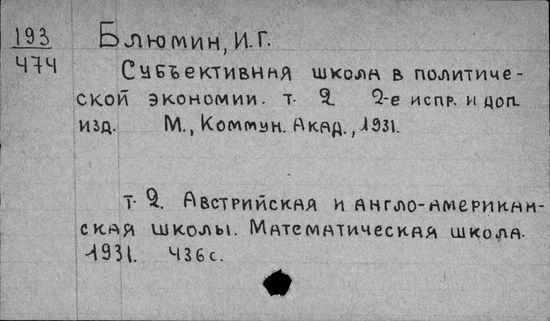 193
474
Блюмин, И.Г.
Субъективная школа в политиче-
ской экономии. т. 2 2-е испр. и доп.
изд. М., Коммун. Акад., 1931.
т. 2. Австрийская и англо-американ-
ская школы. Математическая школа.
1931. 436с.